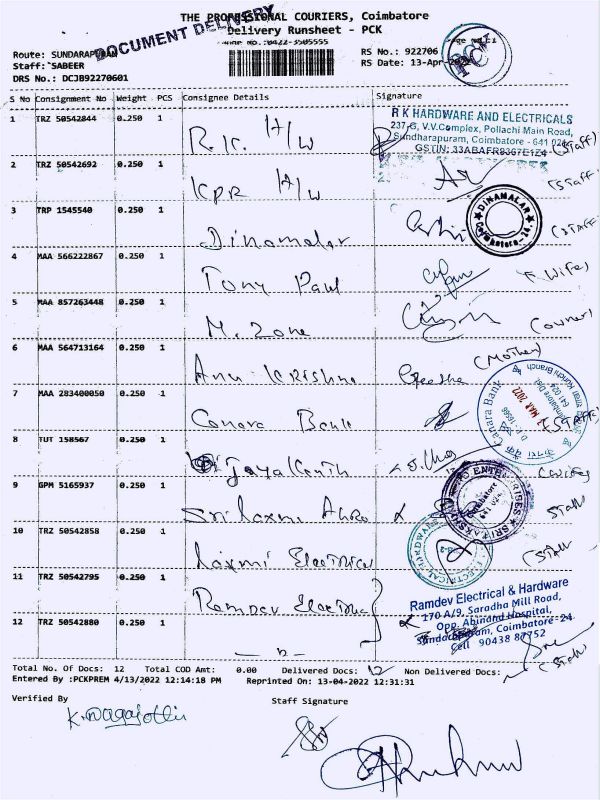 THE PROFESSIONAL COURIERS, Coimbatore
DOCUMENT DELIVERY
Delivery Runsheet - PCK
Route: SUNDARAPURAM
RS No.: 922706
Staff: SABEER
RS Date: 13-Apr-2022
DRS No.: DCJB92270601
S No Consignment No Weight PCS Consignee Details Signature
1 TRZ 50542844 0.250 1 R.K. H/W
R K HARDWARE AND ELECTRICALS
237-G, V.V.Complex, Pollachi Main Road,
Sundharapuram, Coimbatore - 641 024
GSTIN: 33ABAFR9367E1Z4
(Staff)
2 TRZ 50542692 0.250 1 KPR H/W
(Staff)
3 TRP 1545540 0.250 1 Dinamalar
DINAMALAR
Coimbatore-24.
(Staff)
4 MAA 566222867 0.250 1 Tony Paul
(Wife)
5 MAA 857263448 0.250 1 M. Zone
(owner)
6 MAA 564713164 0.250 1 Anu Krishna Geetha (Mother)
7 MAA 283400050 0.250 1 Canara Bank
Canara Bank
MAR 2022
641 024
8 TUT 158567 0.250 1 Jayalkanth
(Wife)
9 GPM 5165937 0.250 1 Sri Laxmi Agro
SRI LAKSHMI AGRO ENTERPRISES
Coimbatore
641 024
Staff
10 TRZ 50542858 0.250 1 Laxmi Electrical
ELECTRICAL HARDWARE
(Staff
11 TRZ 50542795 0.250 1 Ramdev Electrical
Ramdev Electrical & Hardware
170 A/9, Saradha Mill Road,
Opp. Abinand Hospital,
Sundarapuram, Coimbatore-24.
Cell 90438 87752
12 TRZ 50542880 0.250 1
(Staff)
Total No. Of Docs: 12 Total COD Amt: 0.00 Delivered Docs: 12 Non Delivered Docs:
Entered By :PCKPREM 4/13/2022 12:14:18 PM Reprinted On: 13-04-2022 12:31:31
Verified By Staff Signature
K. Nagajothi